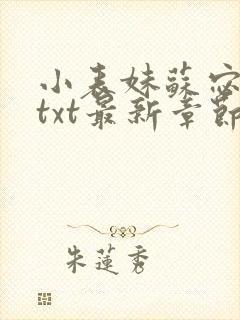 小表妹蘇宓
txt最新章節
朱蓮秀